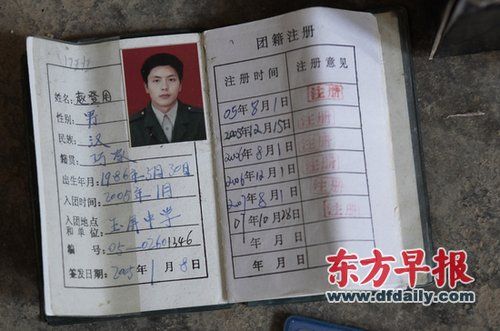 姓名: 赵登用
性别: 男
民族: 汉
籍贯: 巧家
出生年月: 1986年3月30日
入团时间: 2005年1月
入团地点
和单位: 玉屏中学
编号: 05-02601346
签发日期: 2005年1月8日
团籍注册
注册时间 注册意见
05年8月1日 注册
2005年12月15日 注册
2006年8月1日 注册
2006年12月1日 注册
2007年8月1日 注册
07年10月28日 注册
年 月 日
年 月 日
东方早报
www.dfdaily.com